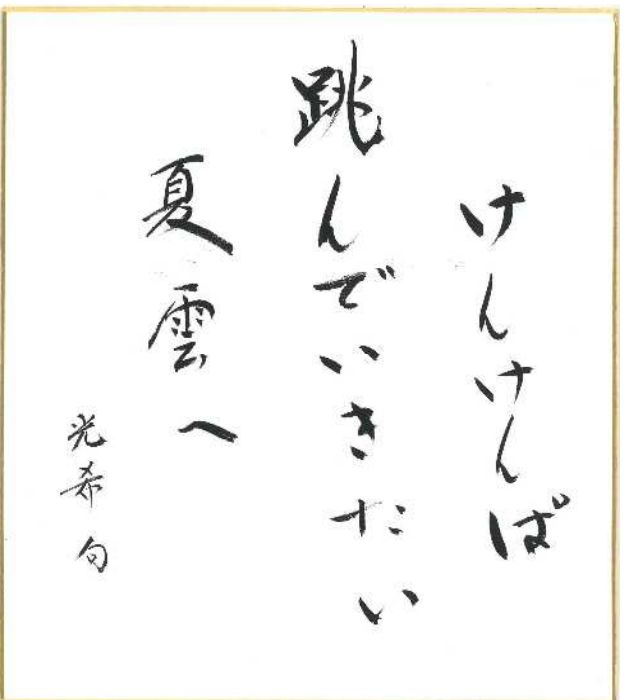 けんけんぱ
跳んでいきたい
夏雲へ
光希 句